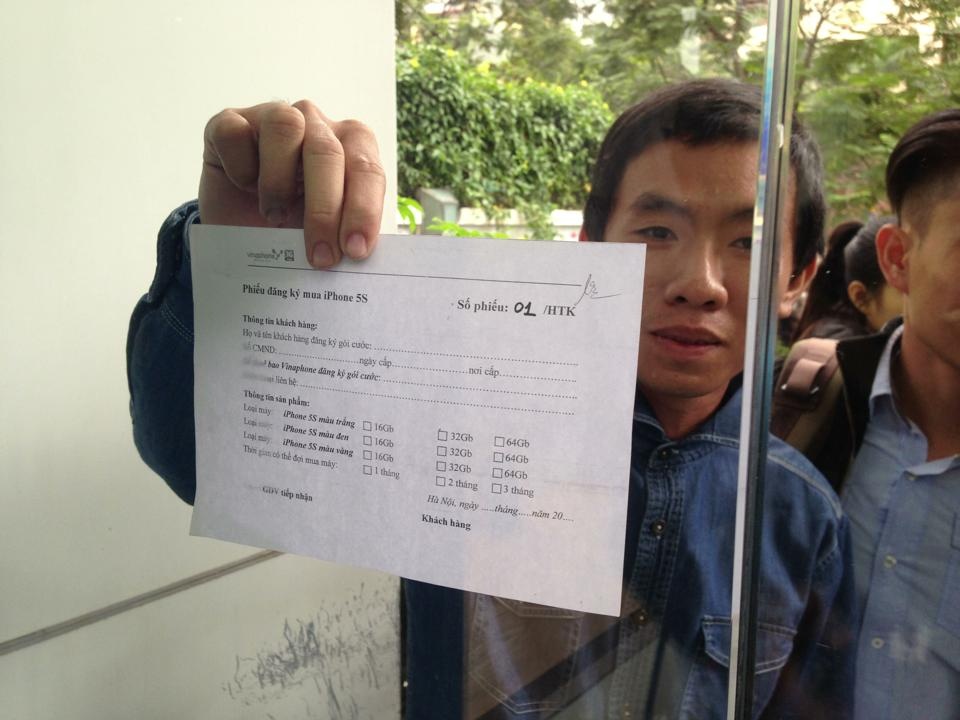 vinaphone 3G
Phiếu đăng ký mua iPhone 5S
Số phiếu: 01 /HTK
Thông tin khách hàng:
Họ và tên khách hàng đăng ký gói cước: ..............................
Số CMND: ....................ngày cấp....................nơi cấp....................
bao Vinaphone đăng ký gói cước: ..............................
liên hệ: ..............................
Thông tin sản phẩm:
Loại máy: iPhone 5S màu trắng ☐ 16Gb ☐ 32Gb ☐ 64Gb
Loại máy: iPhone 5S màu đen ☐ 16Gb ☐ 32Gb ☐ 64Gb
Loại máy: iPhone 5S màu vàng ☐ 16Gb ☐ 32Gb ☐ 64Gb
Thời gian có thể đợi mua máy: ☐ 1 tháng ☐ 2 tháng ☐ 3 tháng
Hà Nội, ngày .....tháng.....năm 20....
GDV tiếp nhận Khách hàng